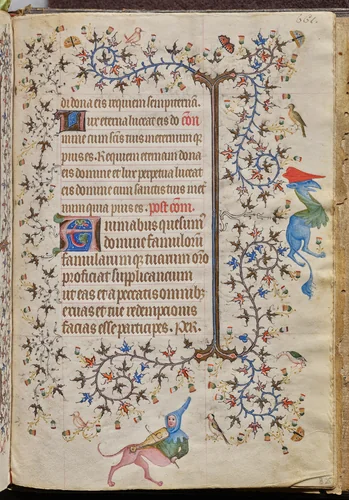 661.
di dona eis requiem sempiterna.
Lux eterna luceat eis do com
mine cum scis tuis in eternum q
pius es. Requiem eternam dona
eis domine et lux perpetua luceat
eis domine cum sanctis tuis in et
num quia pius es. post com.
Animabus quesum
domine famulorum
famularum q tuarum oro
proficiat supplicancium
ut eas et a peccatis omnib
exuas et tue redempcionis
facias esse participes. Per